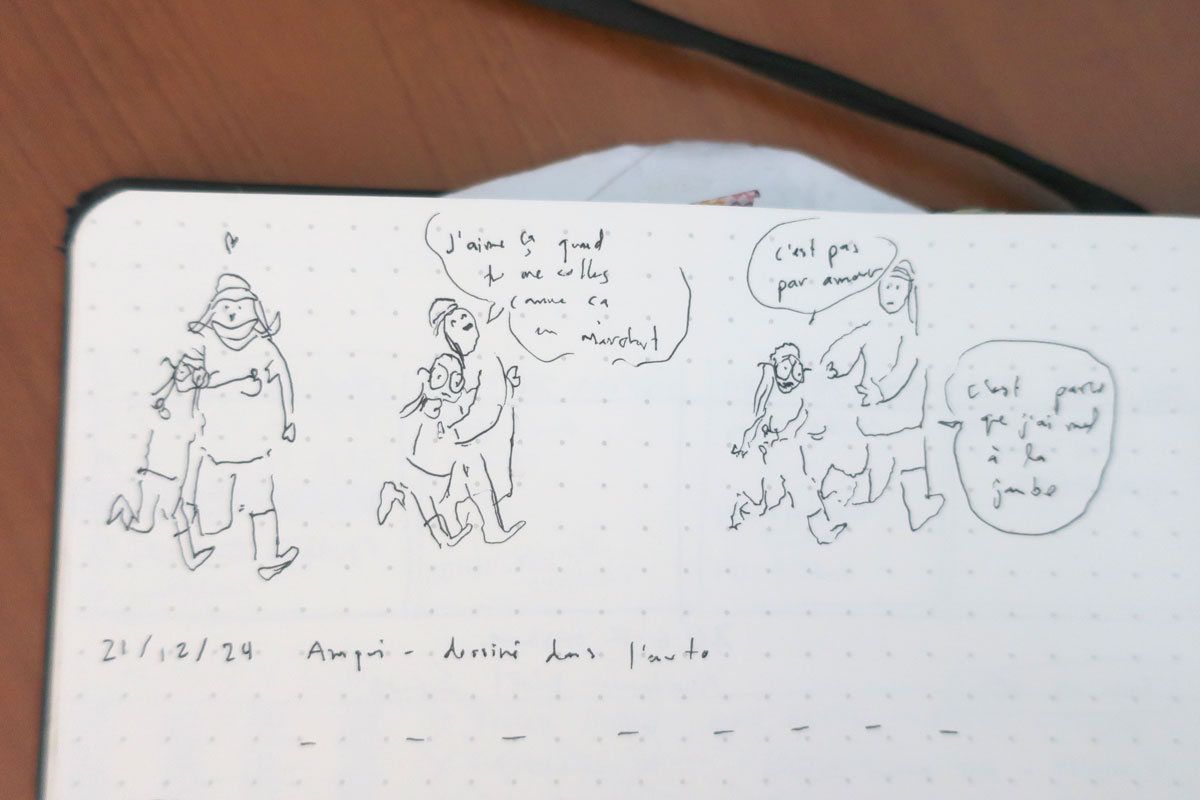 J'aime ça quand
tu me colles
comme ça
en marchant
c'est pas
par amour
c'est parce
que j'ai mal
à la
jambe
21/12/24 Amqui - dessiné dans l'auto